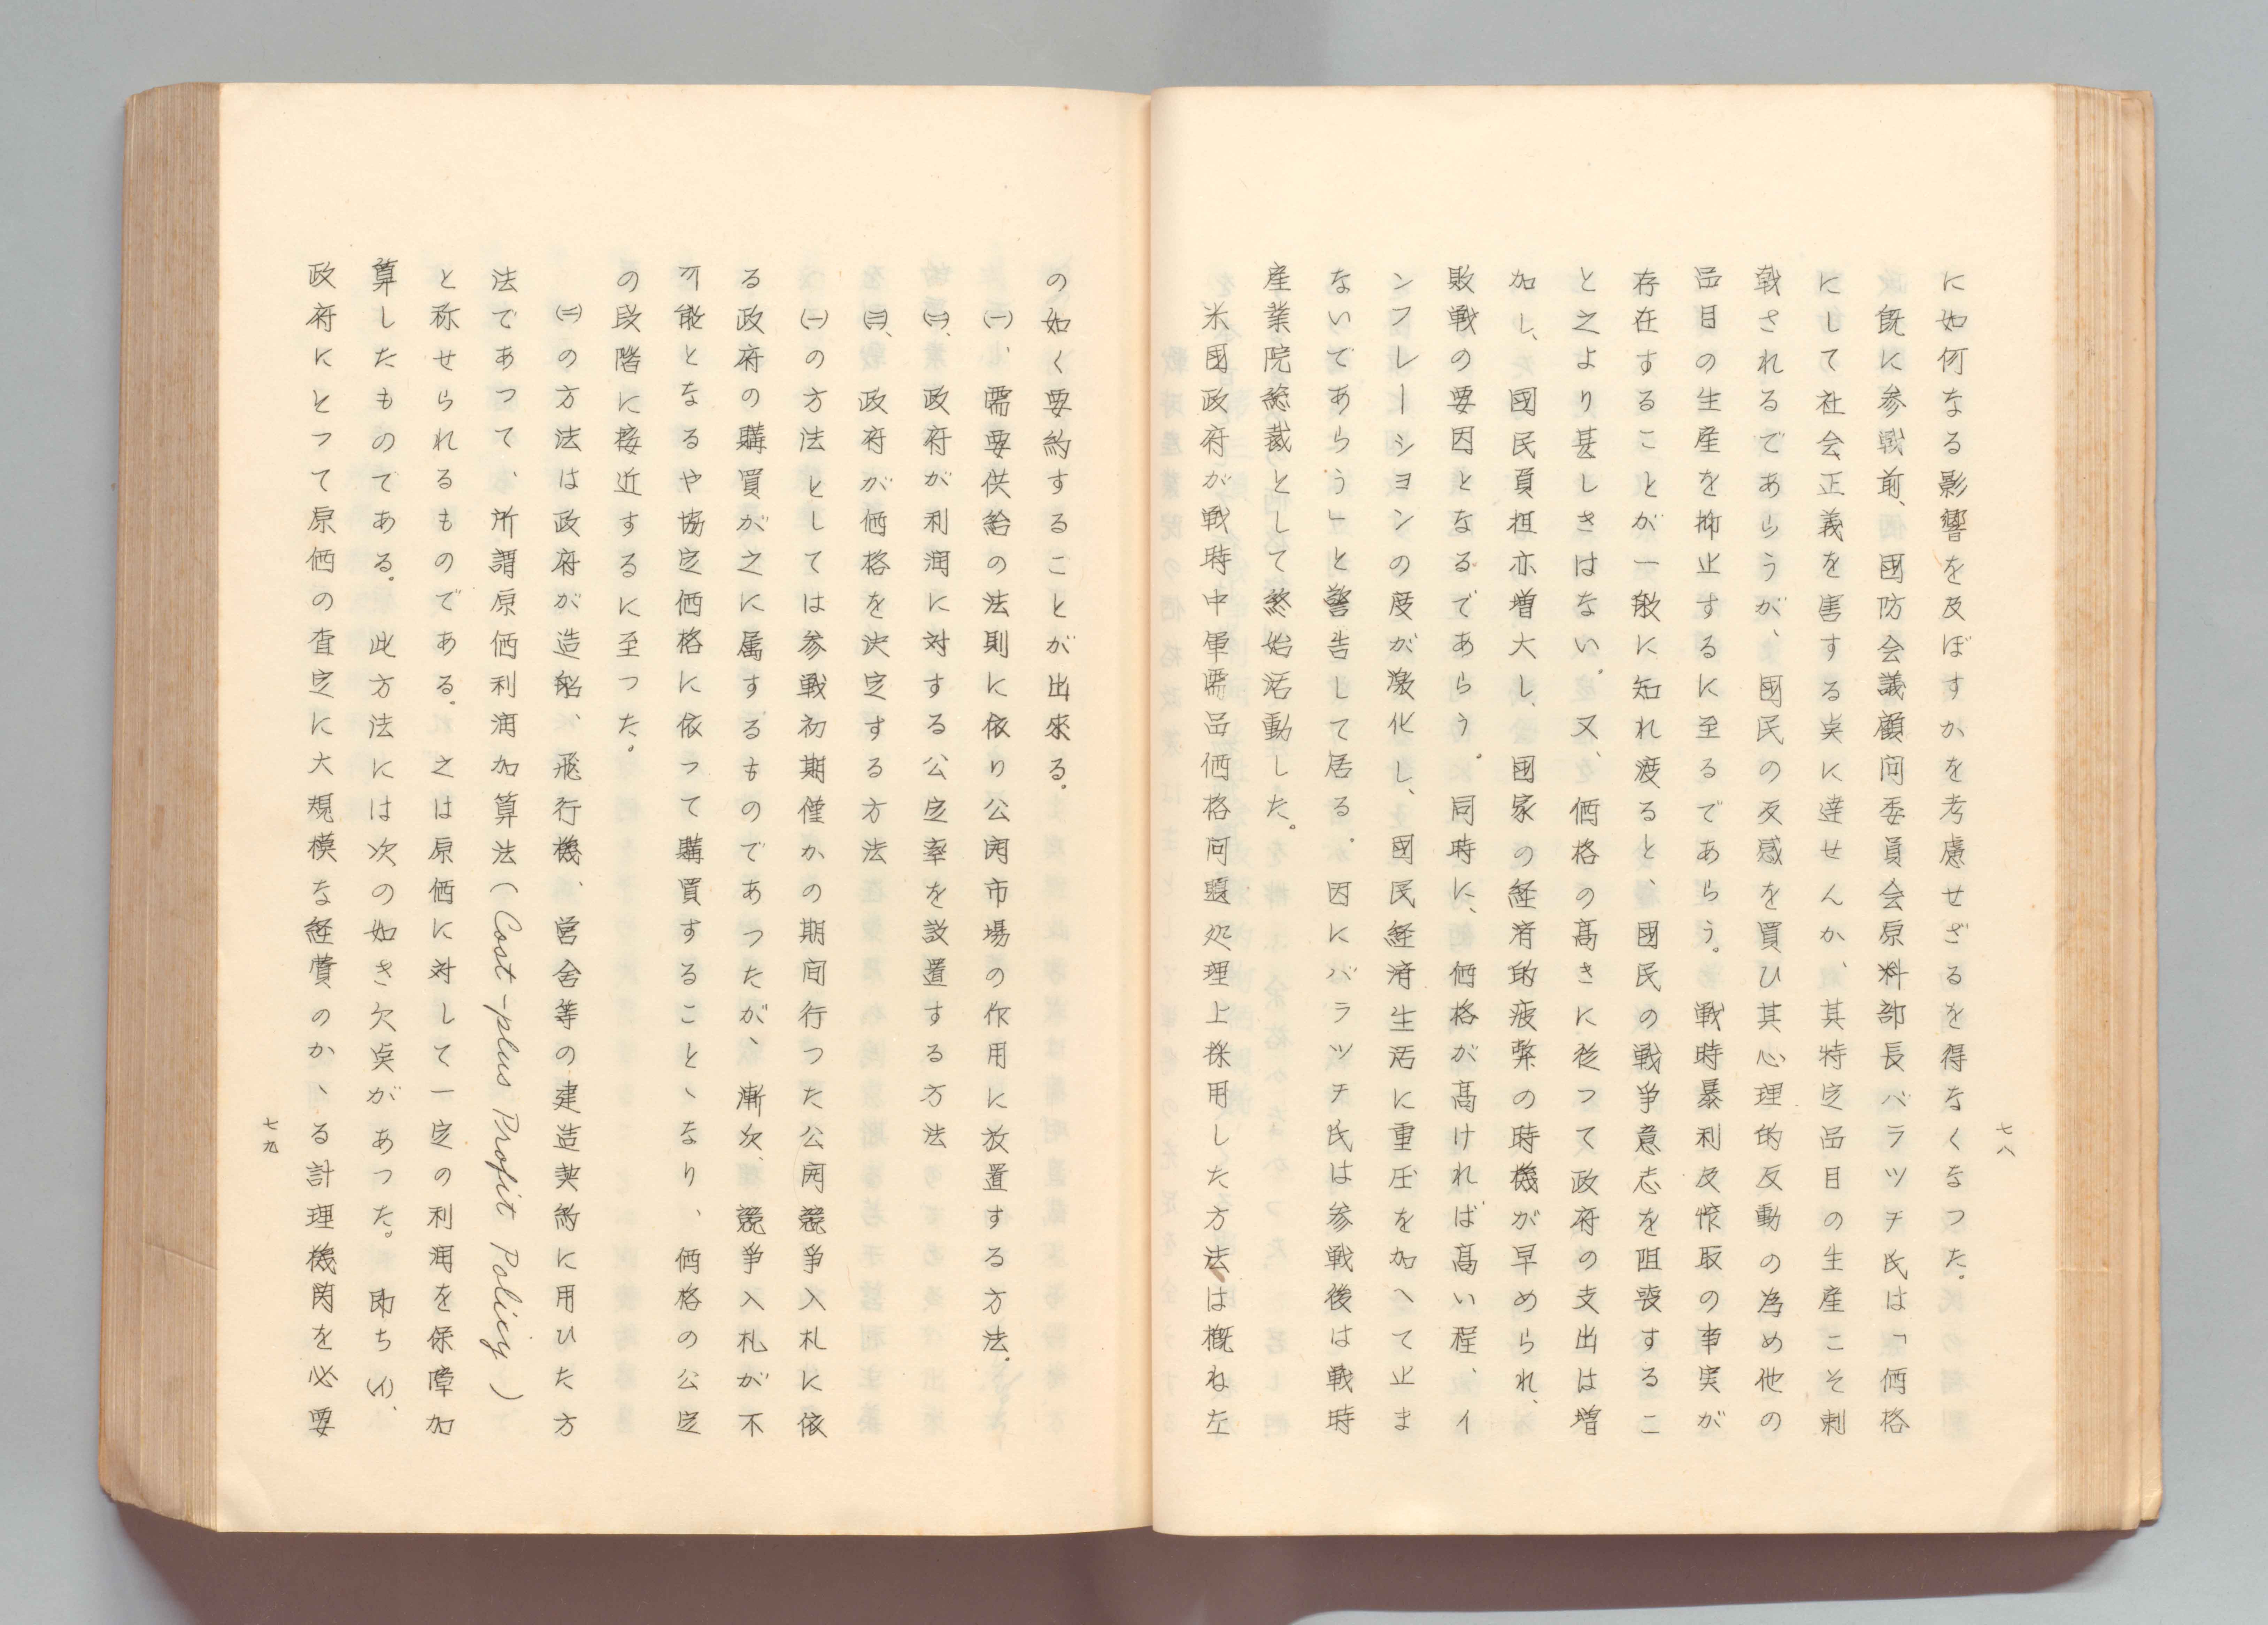 に如何なる影響を及ぼすかを考慮せざるを得なくなつた。
既に参戦前、國防会議顧問委員会原料部長バラツチ氏は「価格
にして社会正義を害する点に達せんか、其特定品目の生産こそ刺
戟されるであらうが、國民の反感を買ひ其心理的反動の為め他の
品目の生産を抑止するに至るであらう。戦時暴利及搾取の事実が
存在することが一般に知れ渡ると、國民の戦争意志を阻喪するこ
と之より甚しきはない。又、価格の高きに従つて政府の支出は増
加し、國民負担亦増大し、國家の経済的疲弊の時機が早められ、
敗戦の要因となるであらう。同時に、価格が高ければ高い程、イ
ンフレーションの度が激化し、國民経済生活に重圧を加へて止ま
ないであらう」と警告して居る。因にバラツチ氏は参戦後は戦時
産業院総裁として終始活動した。
米國政府が戦時中軍需品価格問題処理上採用した方法は概ね左
七八
の如く要約することが出來る。
㈠、需要供給の法則に依り公開市場の作用に放置する方法。
㈡、政府が利潤に対する公定率を設置する方法
㈢、政府が価格を決定する方法
㈠の方法としては参戦初期僅かの期間行つた公開競争入札に依
る政府の購買が之に属するものであつたが、漸次、競争入札が不
可能となるや協定価格に依つて購買することヽなり、価格の公定
の段階に接近するに至つた。
㈡の方法は政府が造船、飛行機、営舎等の建造契約に用ひた方
法であつて、所謂原価利潤加算法(Cost-plus Profit Policy)
と称せられるものである。之は原価に対して一定の利潤を保障加
算したものである。此方法には次の如き欠点があつた。即ち(イ)、
政府にとつて原価の査定に大規模な経費のかヽる計理機関を必要
七九